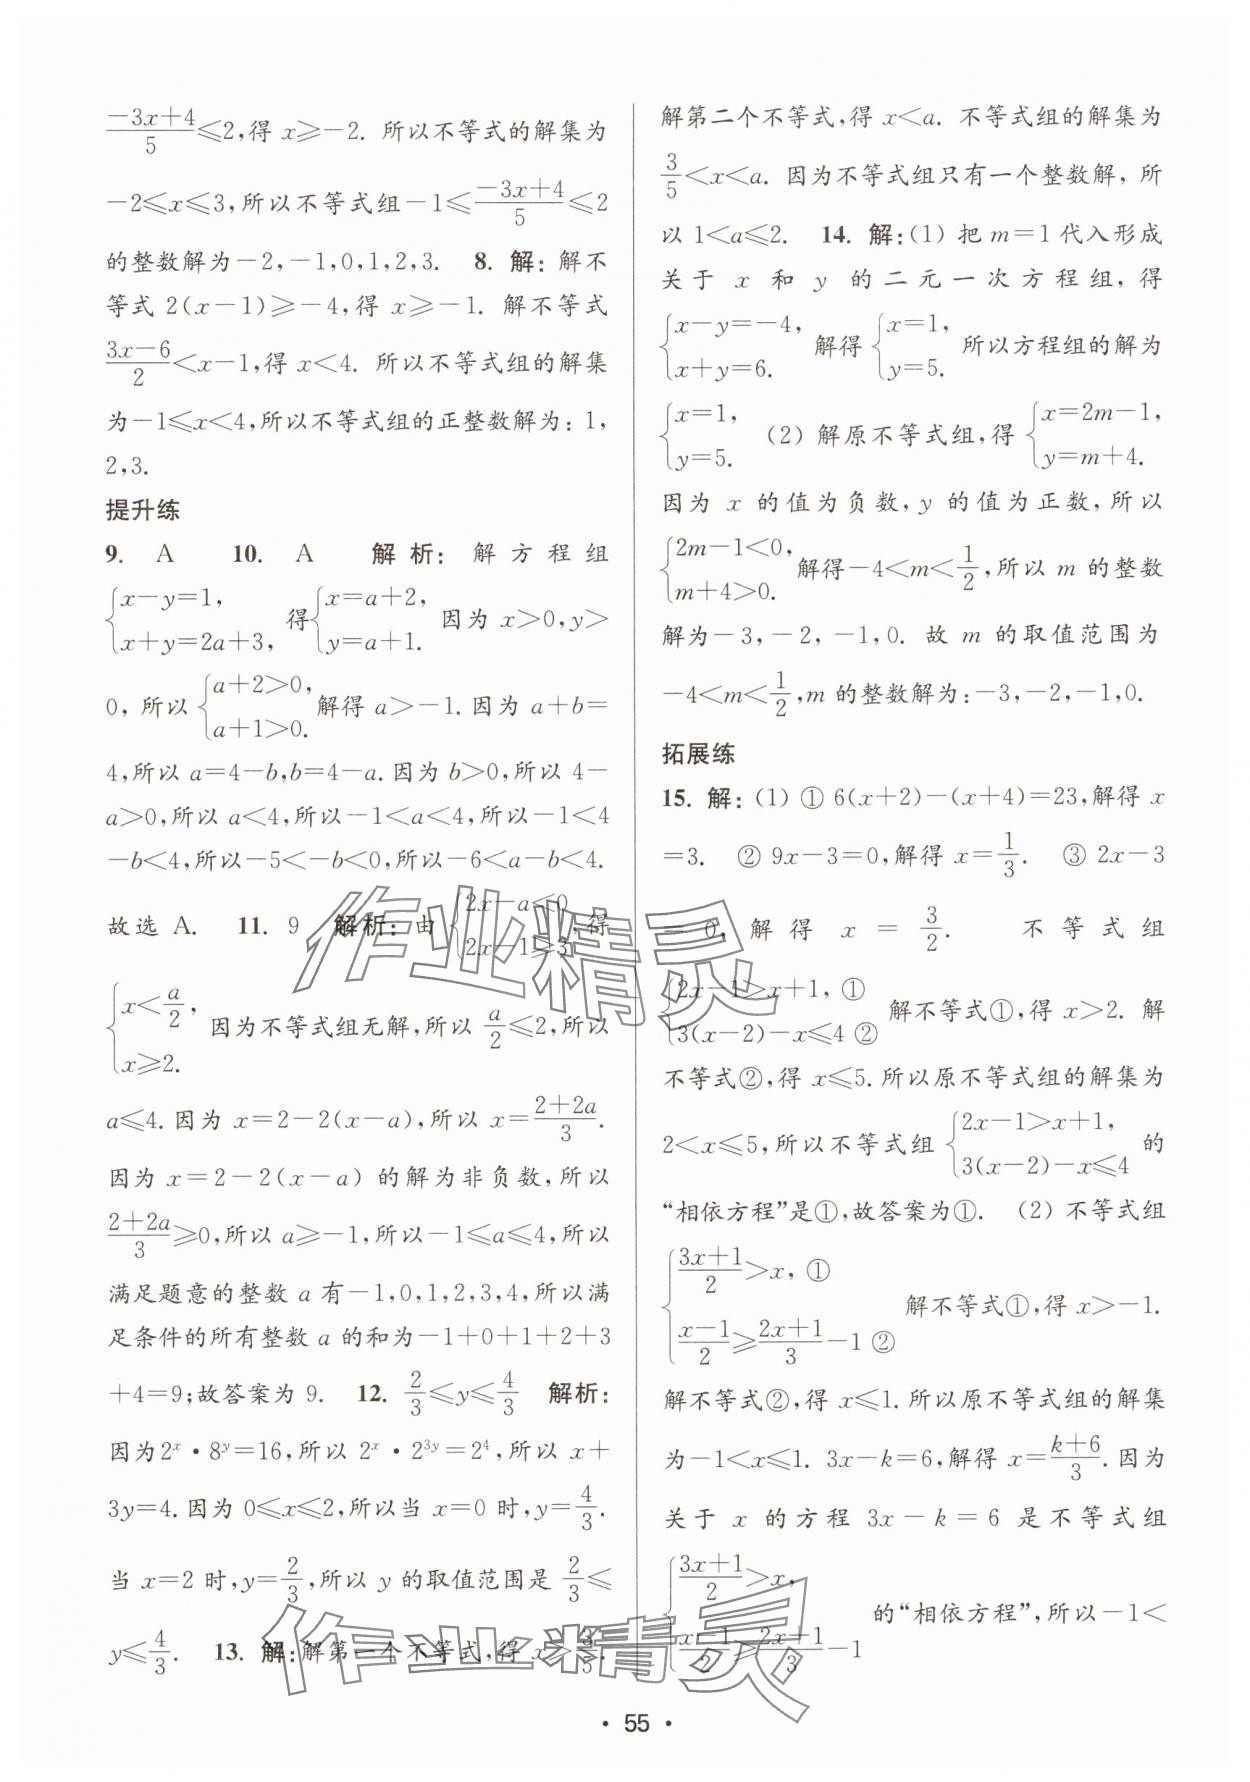 (-3x+4)/5≤2,得 x≥-2. 所以不等式的解集为
-2≤x≤3,所以不等式组-1≤(-3x+4)/5≤2
的整数解为-2,-1,0,1,2,3. 8. 解: 解不
等式 2(x-1)≥-4,得 x≥-1. 解不等式
(3x-6)/2<x-1,得 x<4. 所以不等式组的解集
为-1≤x<4,所以不等式组的正整数解为: 1,
2,3.
提升练
9. A 10. A 解析: 解方程组
{x-y=1, x+y=2a+3, 得 {x=a+2, y=a+1. 因为 x>0,y>
0, 所以 {a+2>0, a+1>0. 解得 a>-1. 因为 a+b=
4,所以 a=4-b,b=4-a. 因为 b>0,所以 4-
a>0,所以 a<4,所以-1<a<4,所以-1<4
-b<4,所以-5<-b<0,所以-6<a-b<4.
故选 A. 11. 9 解析: 由 {2x-a<0, 2x-1≥3, 得
{x<a/2, x≥2. 因为不等式组无解,所以 a/2≤2,所以
a≤4. 因为 x=2-2(x-a),所以 x=(2+2a)/3.
因为 x=2-2(x-a) 的解为非负数,所以
(2+2a)/3≥0,所以 a≥-1,所以-1≤a≤4,所以
满足题意的整数 a 有-1,0,1,2,3,4,所以满
足条件的所有整数 a 的和为-1+0+1+2+3
+4=9;故答案为 9. 12. 2/3≤y≤4/3 解析:
因为2ˣ·8ʸ=16,所以 2ˣ·2³ʸ=2⁴,所以 x+
3y=4. 因为 0≤x≤2,所以当 x=0 时,y=4/3.
当 x=2 时,y=2/3,所以 y 的取值范围是 2/3≤
y≤4/3. 13. 解:解第一个不等式,得 x>3/5.
解第二个不等式,得 x<a. 不等式组的解集为
3/5<x<a. 因为不等式组只有一个整数解, 所
以 1<a≤2. 14. 解:(1) 把 m=1 代入形成
关于 x 和 y 的二元一次方程组, 得
{x-y=-4, x+y=6. 解得 {x=1, y=5. 所以方程组的解为
{x=1, y=5. (2) 解原不等式组,得 {x=2m-1, y=m+4.
因为 x 的值为负数, y 的值为正数, 所以
{2m-1<0, m+4>0. 解得-4<m<1/2,所以 m 的整数
解为-3,-2,-1,0. 故 m 的取值范围为
-4<m<1/2,m 的整数解为:-3,-2,-1,0.
拓展练
15. 解:(1) ① 6(x+2)-(x+4)=23,解得 x
=3. ② 9x-3=0,解得 x=1/3. ③ 2x-3
=0, 解得 x=3/2. 不等式组
{2x-1>x+1, ① 3(x-2)-x≤4 ② 解不等式①,得 x>2. 解
不等式②,得 x≤5. 所以原不等式组的解集为
2<x≤5,所以不等式组 {2x-1>x+1, 3(x-2)-x≤4 的
“相依方程”是①,故答案为①. (2) 不等式组
{(3x+1)/2>x, ① (x-1)/2≥(2x+1)/3-1 ② 解不等式①,得 x>-1.
解不等式②,得 x≤1. 所以原不等式组的解集
为-1<x≤1. 3x-k=6,解得 x=(k+6)/3. 因为
关于 x 的方程 3x-k=6 是不等式组
{(3x+1)/2>x, (x-1)/2≥(2x+1)/3-1 的“相依方程”,所以-1<
作业精灵
作业精灵
· 55 ·